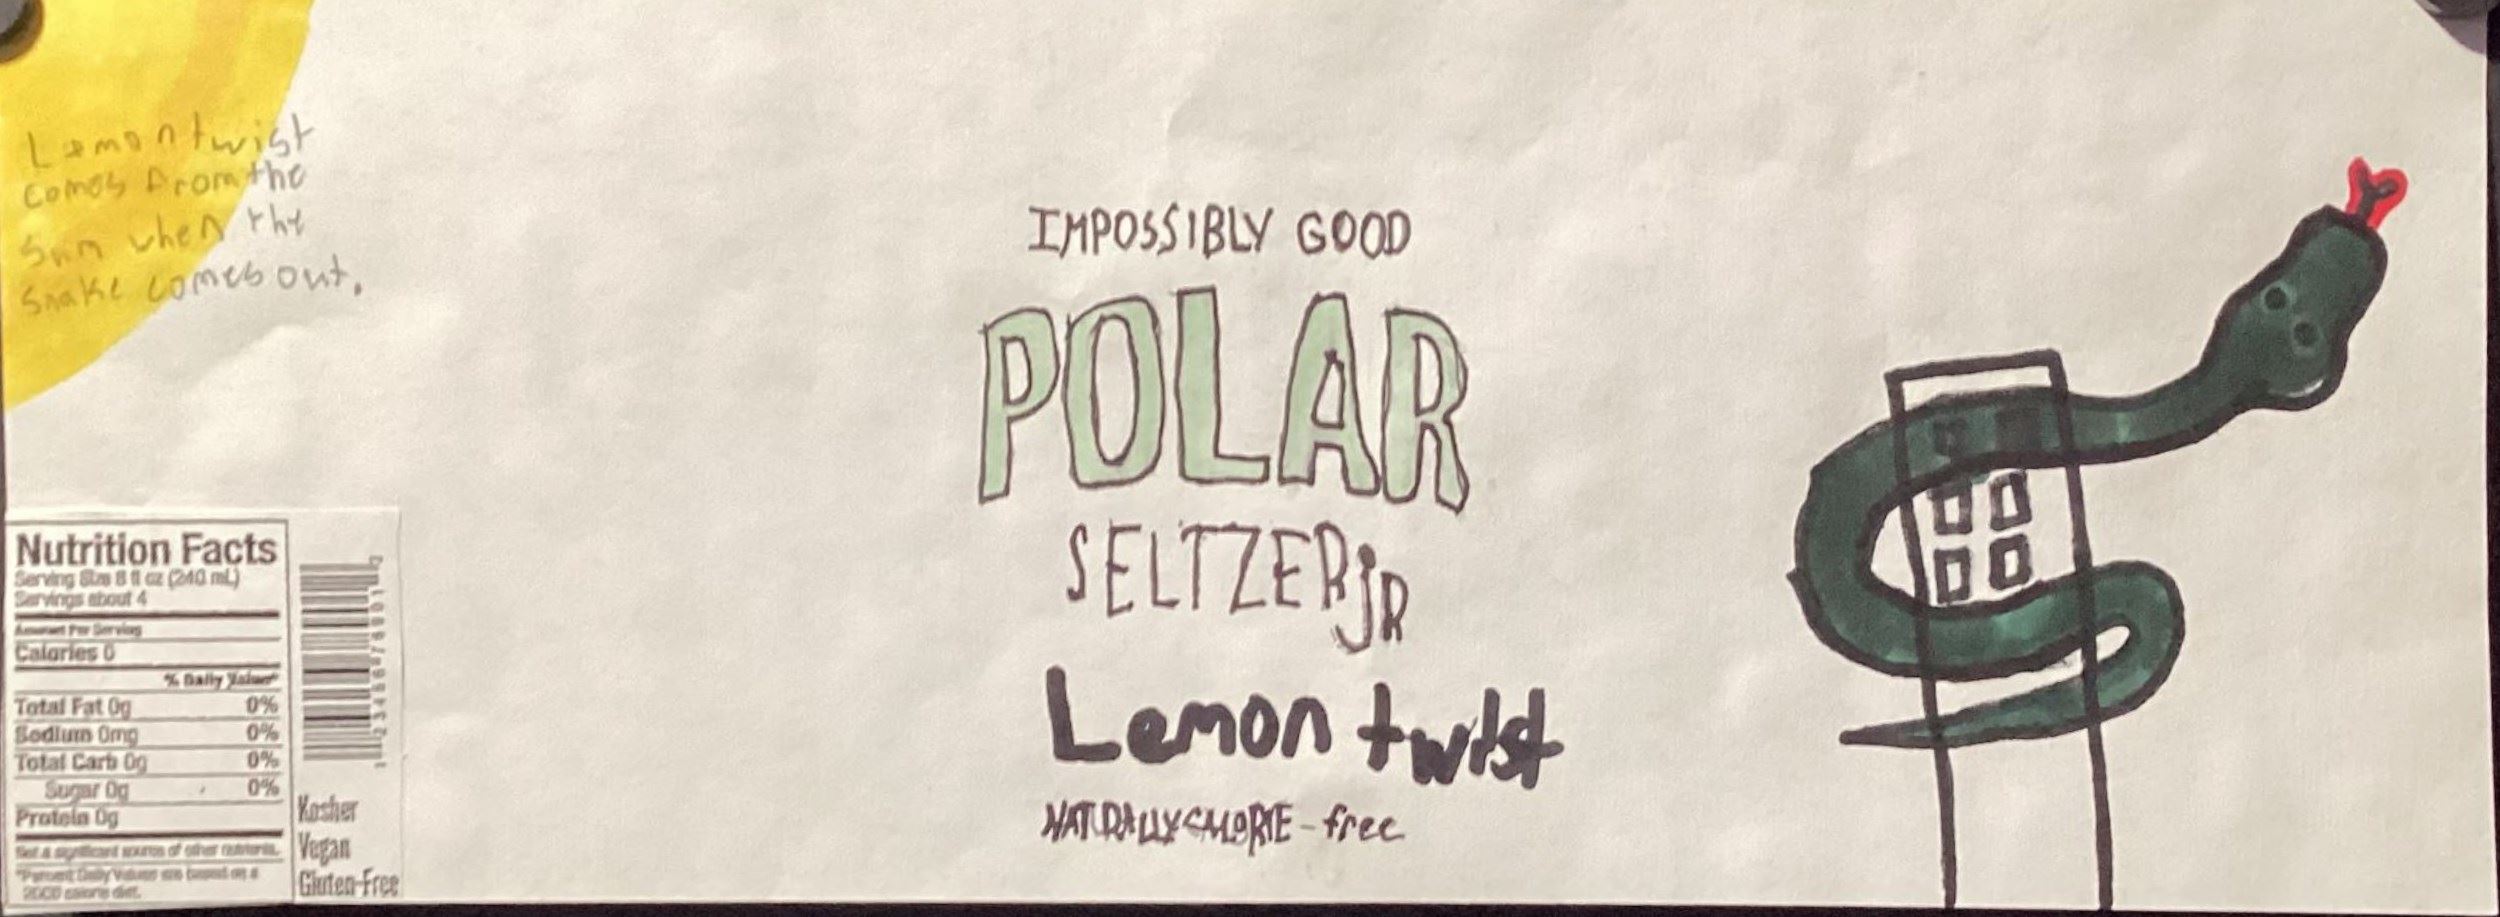 Lemon twist
comes from the
sun when the
snake comes out.
IMPOSSIBLY GOOD
POLAR
SELTZER JR
Lemon twist
NATURALLY CALORIE-free
Nutrition Facts
Serving Size 8 fl oz (240 mL)
Servings about 4
Amount Per Serving
Calories 0
% Daily Value*
Total Fat 0g 0%
Sodium 0mg 0%
Total Carb 0g 0%
Sugar 0g 0%
Protein 0g
Not a significant source of other nutrients.
*Percent Daily Values are based on a
2000 calorie diet.
Kosher
Vegan
Gluten-Free